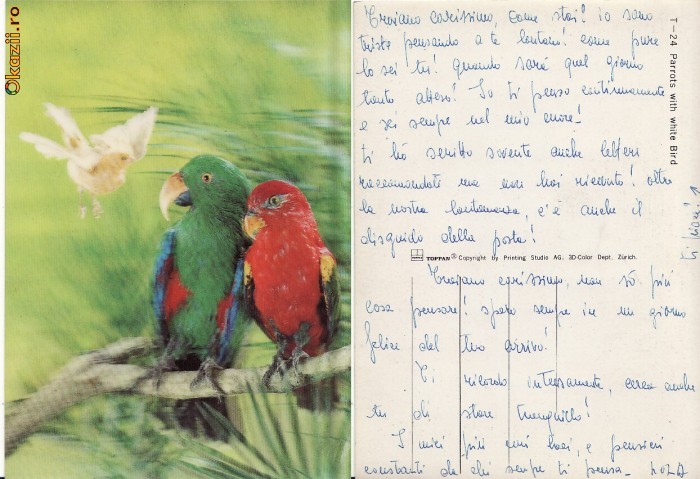 Okazii.ro
T-24 Parrots with white Bird
Troiano carissimo, come stai! io sono
triste pensando a te lontano! come pure
lo sei tu! quando sarà quel giorno
tanto atteso! Io ti penso continuamente
e sei sempre nel mio cuore!
ti ho scritto sovente anche lettere
raccomandate ma non hai ricevuto! oltre
la nostra lontananza, c'è anche il
disguido della posta!
TOPPAN® Copyright by Printing Studio AG, 3D-Color Dept. Zürich.
Troiano carissimo, non so più
cosa pensare! spero sempre in un giorno
felice del tuo arrivo!
Ti ricordo intensamente, cerca anche
tu di stare tranquillo!
I miei più cari baci, e pensieri
costanti da chi sempre ti pensa -